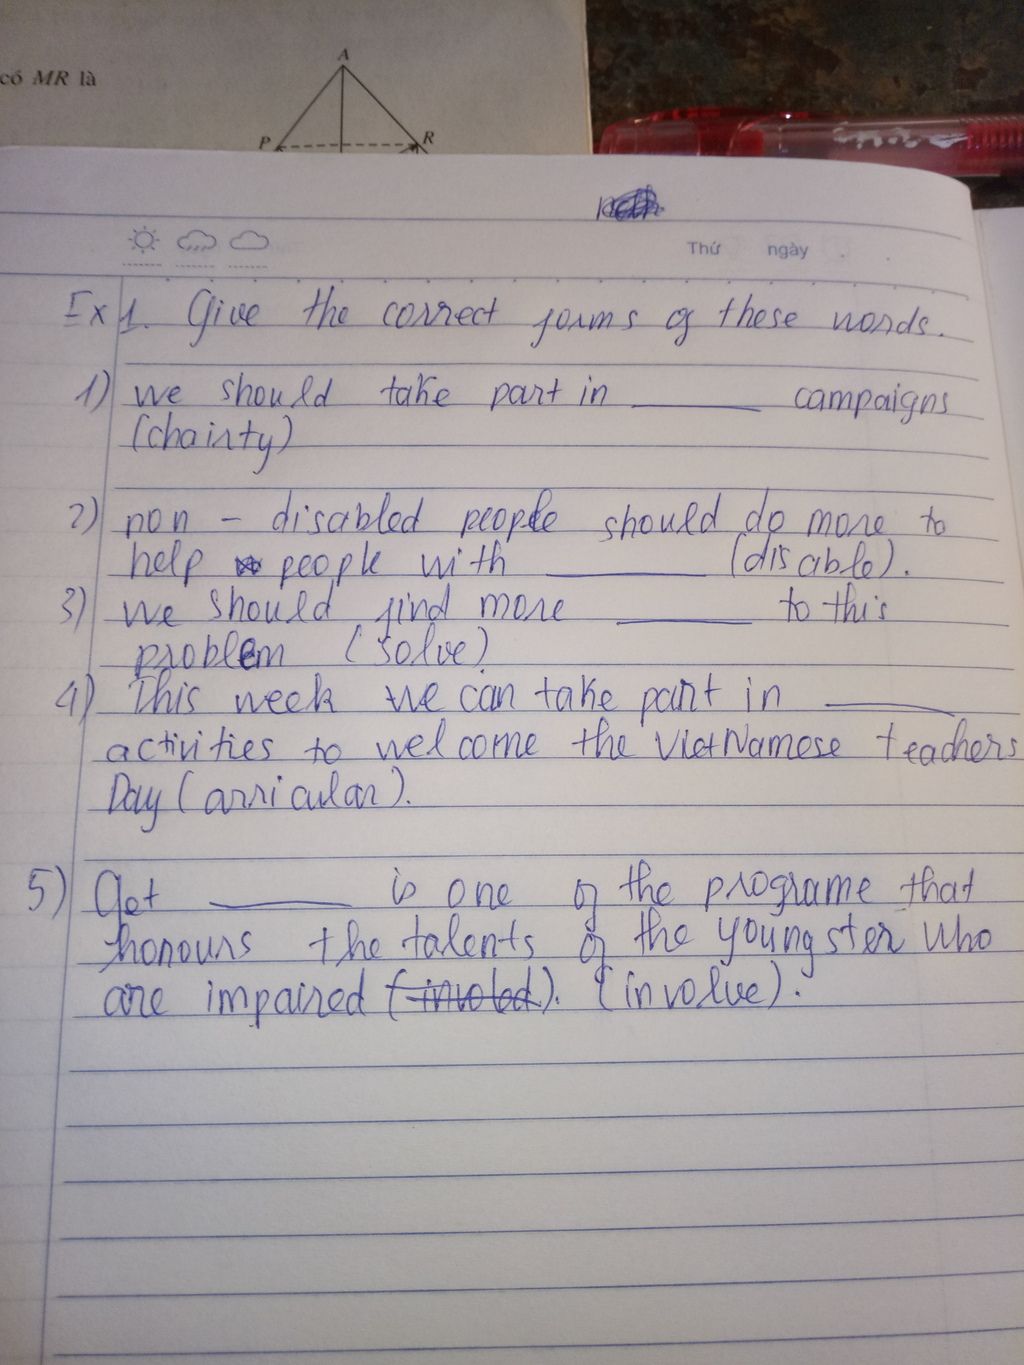 có MR là
A
P
R
Thứ ngày
Ex 1. Give the correct forms of these words.
1) we should take part in ______ campaigns
(chairty)
2) non - disabled people should do more to
help people with ______ (disable).
3) we should find more ______ to this
problem (solve)
4) This week we can take part in ______
activities to welcome the VietNamese teachers
Day (arricular).
5) Get ______ is one of the programe that
honours the talents of the youngster who
are impaired (involed). (involve).